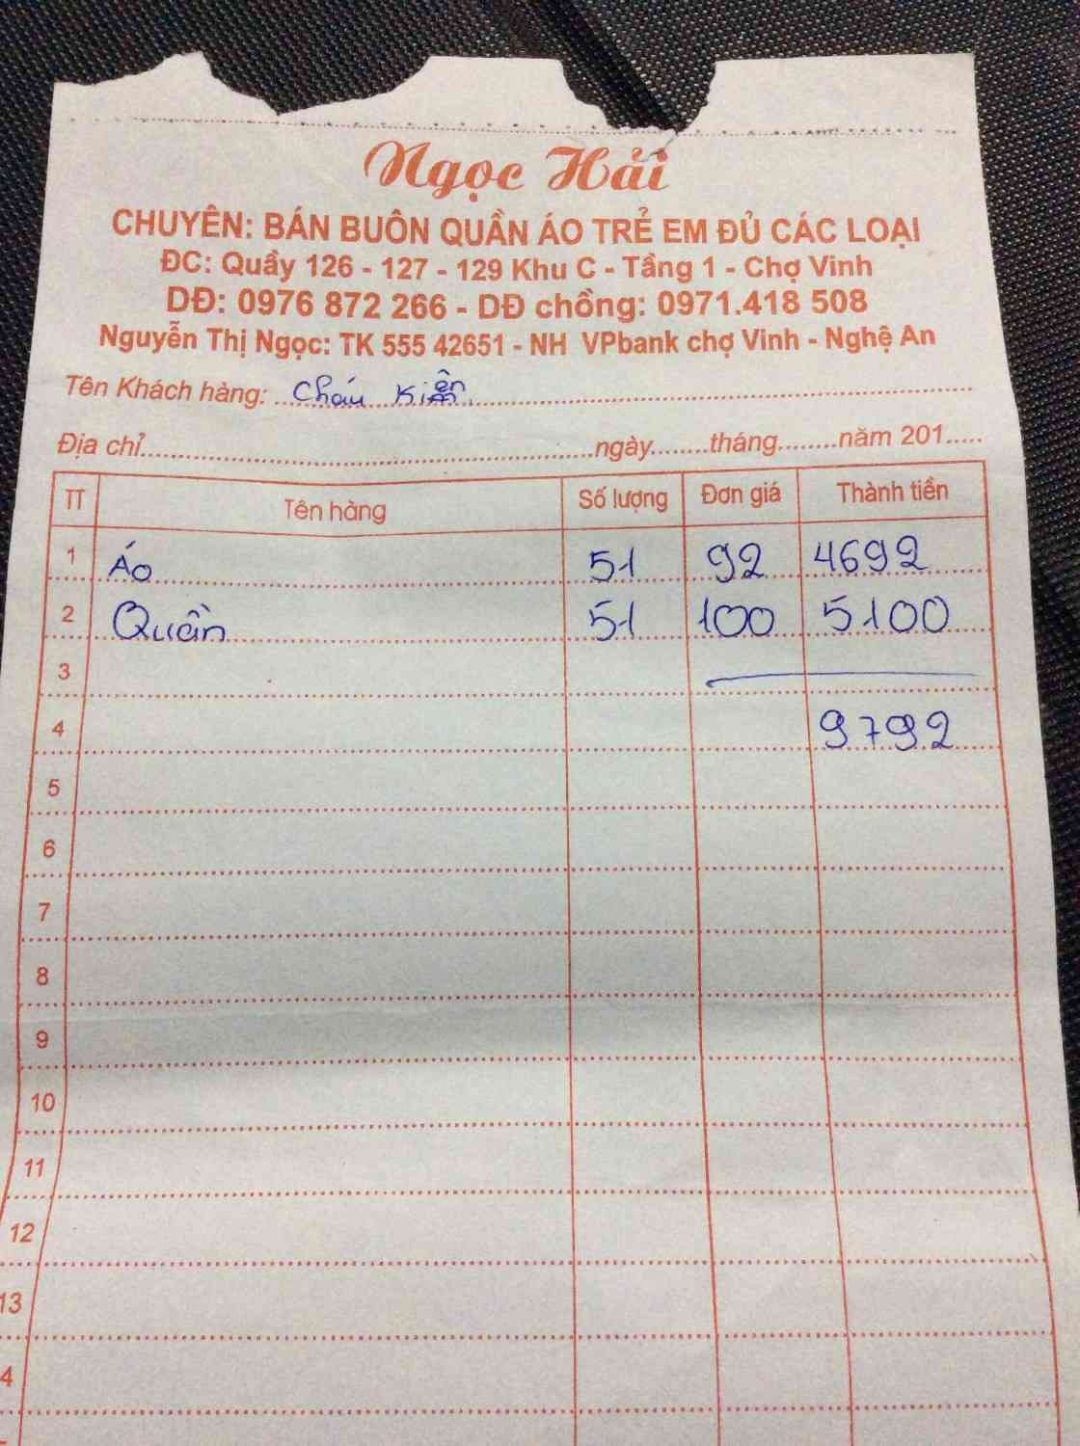 Ngọc Hải
CHUYÊN: BÁN BUÔN QUẦN ÁO TRẺ EM ĐỦ CÁC LOẠI
ĐC: Quầy 126 - 127 - 129 Khu C - Tầng 1 - Chợ Vinh
DĐ: 0976 872 266 - DĐ chồng: 0971.418 508
Nguyễn Thị Ngọc: TK 555 42651 - NH VPbank chợ Vinh - Nghệ An
Tên Khách hàng: Cháu Kiên
Địa chỉ ngày tháng năm 201
TT Tên hàng Số lượng Đơn giá Thành tiền
1 Áo 51 92 4692
2 Quần 51 100 5100
3
4 9792
5
6
7
8
9
10
11
12
13
4